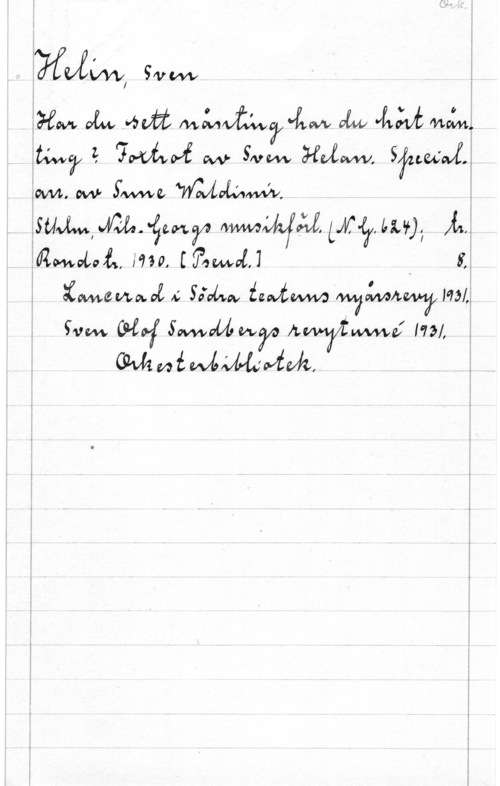 Ork.
Helin, Sven
Har du sett nånting har du hört nån-
ting? Foxtrot av Sven Helan. Special-
arr. av Sune Waldimir.
Sthlm, Nils-Georgs musikförl. (N.G. 624); tr.
Rondotr. 1930. [Pseud.] 8.
Lancerad i Södra teaterns nyårsrevy 1931.
Sven Olof Sandbergs revyturné 1931.
Orkesterbibliotek.